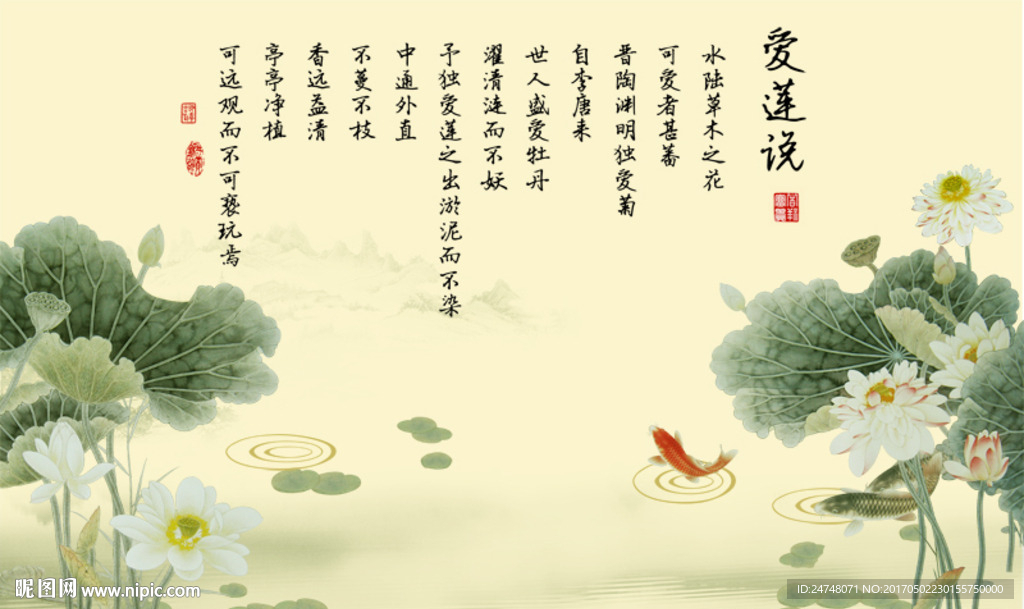 爱莲说
水陆草木之花
可爱者甚蕃
晋陶渊明独爱菊
自李唐来
世人盛爱牡丹
予独爱莲之出淤泥而不染
濯清涟而不妖
中通外直
不蔓不枝
香远益清
亭亭净植
可远观而不可亵玩焉
昵图网 www.nipic.com
ID:24748071 NO:20170502230155750000